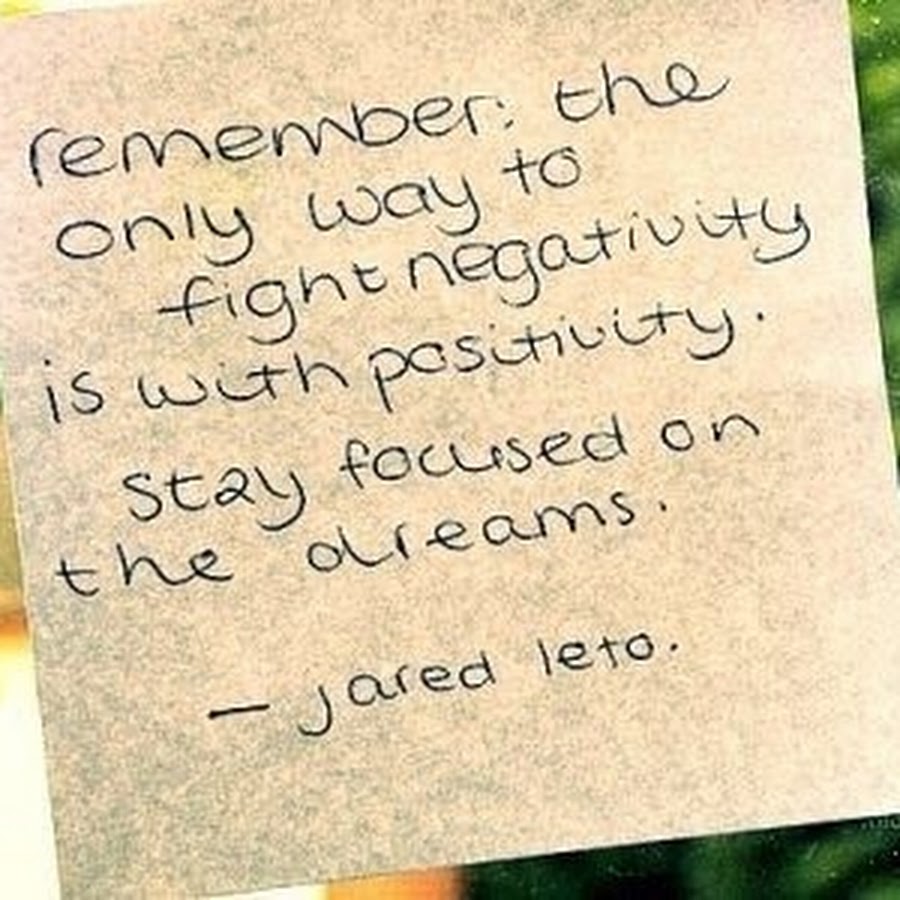 remember: the
only way to
fight negativity
is with positivity.
stay focused on
the dreams.
— jared leto.